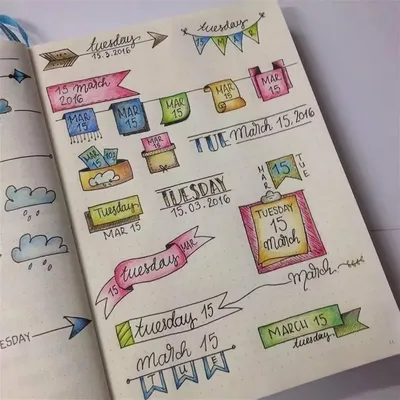 tuesday
15.3.2016
tuesday
15 MAR
15 March
2016
MAR
15
MAR
15
MAR
15
MAR
15
MAR
15
TUE March 15, 2016
MAR
15
MAR
15
TUESDAY
15.03.2016
MAR
15
TUE
Tuesday
MAR 15
TUESDAY
15
March
15 tuesday MAR
March
tuesday 15
ESDAY
MARCH 15
tuesday
march 15
TUE